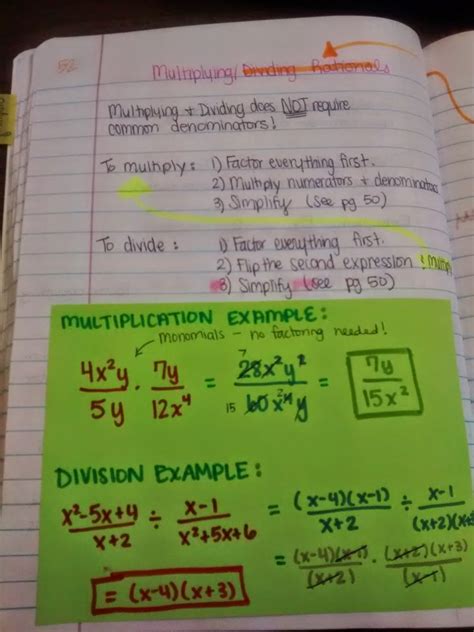 52
Multiplying/Dividing Rationals
Multiplying + Dividing does NOT require
common denominators!
To multiply: 1) Factor everything first.
2) Multiply numerators + denominators
3) Simplify (see pg 50)
To divide: 1) Factor everything first.
2) Flip the second expression & Multiply
3) Simplify (see pg 50)
MULTIPLICATION EXAMPLE:
monomials - no factoring needed!
4x²y/5y · 7y/12x⁴ = 7 28x²y²/15 60x⁴y = 7y/15x²
DIVISION EXAMPLE:
x²-5x+4/x+2 ÷ x-1/x²+5x+6 = (x-4)(x-1)/x+2 ÷ x-1/(x+2)(x+
= (x-4)(x-1)/(x+2) · (x+2)(x+3)/(x-1)
= (x-4)(x+3)